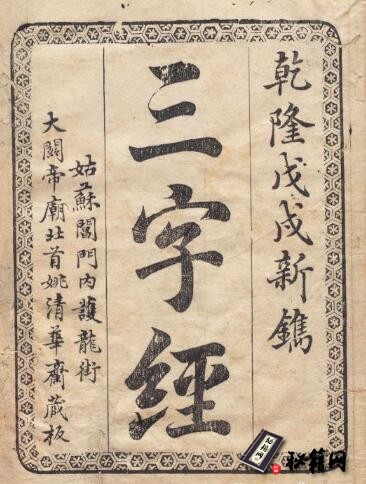 乾隆戊戌新鐫
三字經
姑蘇閶門內護龍街
大關帝廟北首姚清華齋藏板
秘籍网